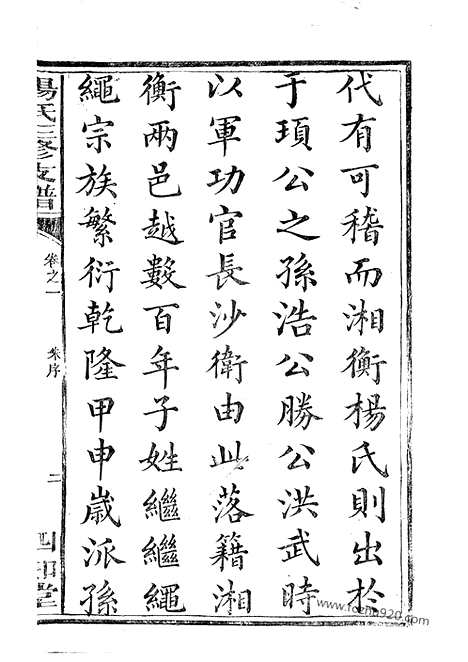 代有可稽而湘衡楊氏則出於
于項公之孫浩公勝公洪武時
以軍功官長沙衛由此落籍湘
衡兩邑越數百年子姓繼繼繩
繩宗族繁衍乾隆甲申歲派孫
楊氏三修支譜
卷之一
朱序
二
四知堂
www.fozhu920.com